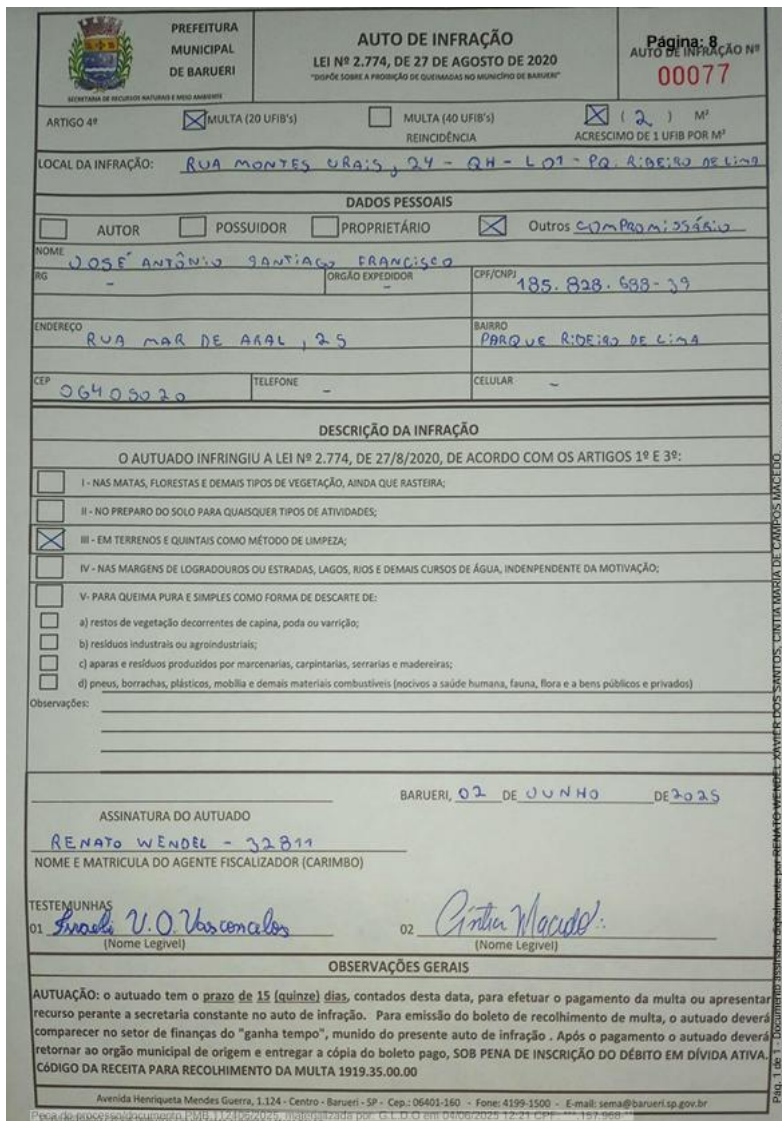 PREFEITURA
MUNICIPAL
DE BARUERI
SECRETARIA DE RECURSOS NATURAIS E MEIO AMBIENTE
AUTO DE INFRAÇÃO
LEI Nº 2.774, DE 27 DE AGOSTO DE 2020
"DISPÕE SOBRE A PROIBIÇÃO DE QUEIMADAS NO MUNICÍPIO DE BARUERI"
Página: 8
AUTO DE INFRAÇÃO Nº
00077
ARTIGO 4º
MULTA (20 UFIB's)
MULTA (40 UFIB's)
REINCIDÊNCIA
( 2 ) M²
ACRESCIMO DE 1 UFIB POR M²
LOCAL DA INFRAÇÃO: RUA MONTES URAIS, 24 - QH - L01 - PQ. RIBEIRO DE LIMA
DADOS PESSOAIS
AUTOR POSSUIDOR PROPRIETÁRIO Outros COMPROMISSÁRIO
NOME
JOSÉ ANTÔNIO SANTIAGO FRANCISCO
RG - ORGÃO EXPEDIDOR - CPF/CNPJ 185.828.688-39
ENDEREÇO
RUA MAR DE ARAL, 25
BAIRRO
PARQUE RIBEIRO DE LIMA
CEP 06405020 TELEFONE - CELULAR -
DESCRIÇÃO DA INFRAÇÃO
O AUTUADO INFRINGIU A LEI Nº 2.774, DE 27/8/2020, DE ACORDO COM OS ARTIGOS 1º E 3º:
I - NAS MATAS, FLORESTAS E DEMAIS TIPOS DE VEGETAÇÃO, AINDA QUE RASTEIRA;
II - NO PREPARO DO SOLO PARA QUAISQUER TIPOS DE ATIVIDADES;
III - EM TERRENOS E QUINTAIS COMO MÉTODO DE LIMPEZA;
IV - NAS MARGENS DE LOGRADOUROS OU ESTRADAS, LAGOS, RIOS E DEMAIS CURSOS DE ÁGUA, INDENPENDENTE DA MOTIVAÇÃO;
V- PARA QUEIMA PURA E SIMPLES COMO FORMA DE DESCARTE DE:
a) restos de vegetação decorrentes de capina, poda ou varrição;
b) resíduos industrais ou agroindustriais;
c) aparas e resíduos produzidos por marcenarias, carpintarias, serrarias e madereiras;
d) pneus, borrachas, plásticos, mobília e demais materiais combustíveis (nocivos a saúde humana, fauna, flora e a bens públicos e privados)
Observações:
BARUERI, 02 DE JUNHO DE 2025
ASSINATURA DO AUTUADO
RENATO WENDEL - 32811
NOME E MATRICULA DO AGENTE FISCALIZADOR (CARIMBO)
TESTEMUNHAS
01 V. O. Vasconcelos
(Nome Legivel)
02 Cíntia Macedo
(Nome Legivel)
OBSERVAÇÕES GERAIS
AUTUAÇÃO: o autuado tem o prazo de 15 (quinze) dias, contados desta data, para efetuar o pagamento da multa ou apresentar
recurso perante a secretaria constante no auto de infração. Para emissão do boleto de recolhimento de multa, o autuado deverá
comparecer no setor de finanças do "ganha tempo", munido do presente auto de infração . Após o pagamento o autuado deverá
retornar ao orgão municipal de origem e entregar a cópia do boleto pago, SOB PENA DE INSCRIÇÃO DO DÉBITO EM DÍVIDA ATIVA.
CÓDIGO DA RECEITA PARA RECOLHIMENTO DA MULTA 1919.35.00.00
Avenida Henriqueta Mendes Guerra, 1.124 - Centro - Barueri - SP - Cep.: 06401-160 - Fone: 4199-1500 - E-mail: sema@barueri.sp.gov.br
Peça do processo/documento materializada por: G.L.D.O em 04/06/2025 12:21 CPF: ***.157.968-**
Pág. 1 de 1 - Documento assinado digitalmente por RENATO WENDEL XAVIER DOS SANTOS, CINTIA MARIA DE CAMPOS MACEDO.